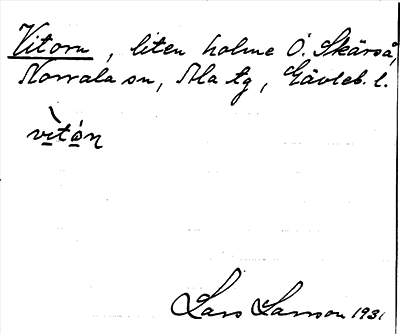 Vitorn, liten holme Ö. Skärså,
Norrala sn, Ala tg, Gävleb. l.
vi̱tò̱ṇ
Lars Larsson 1931